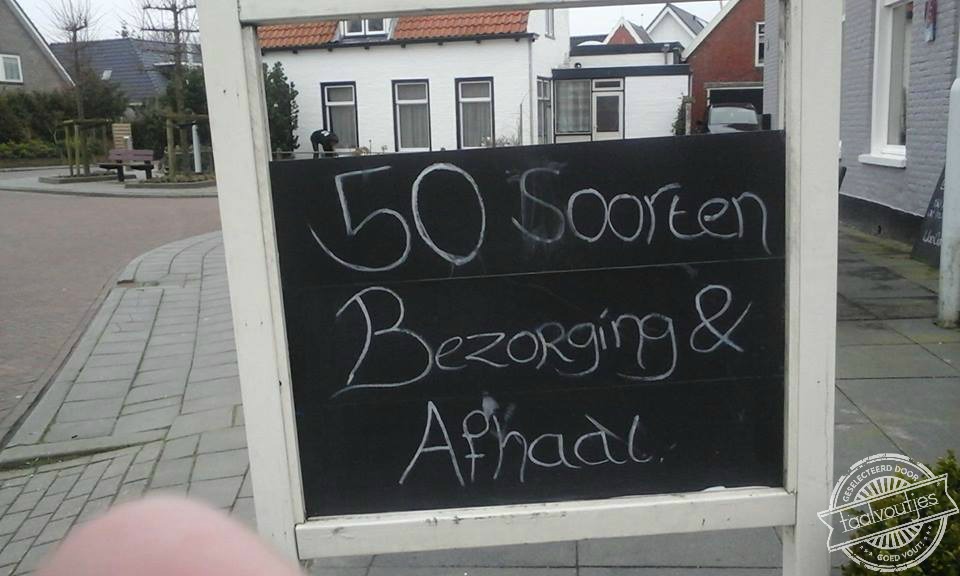 50 Soorten
Bezorging &
Afhaal.
GESELECTEERD DOOR
taalvoutjes
GOED VOUT!